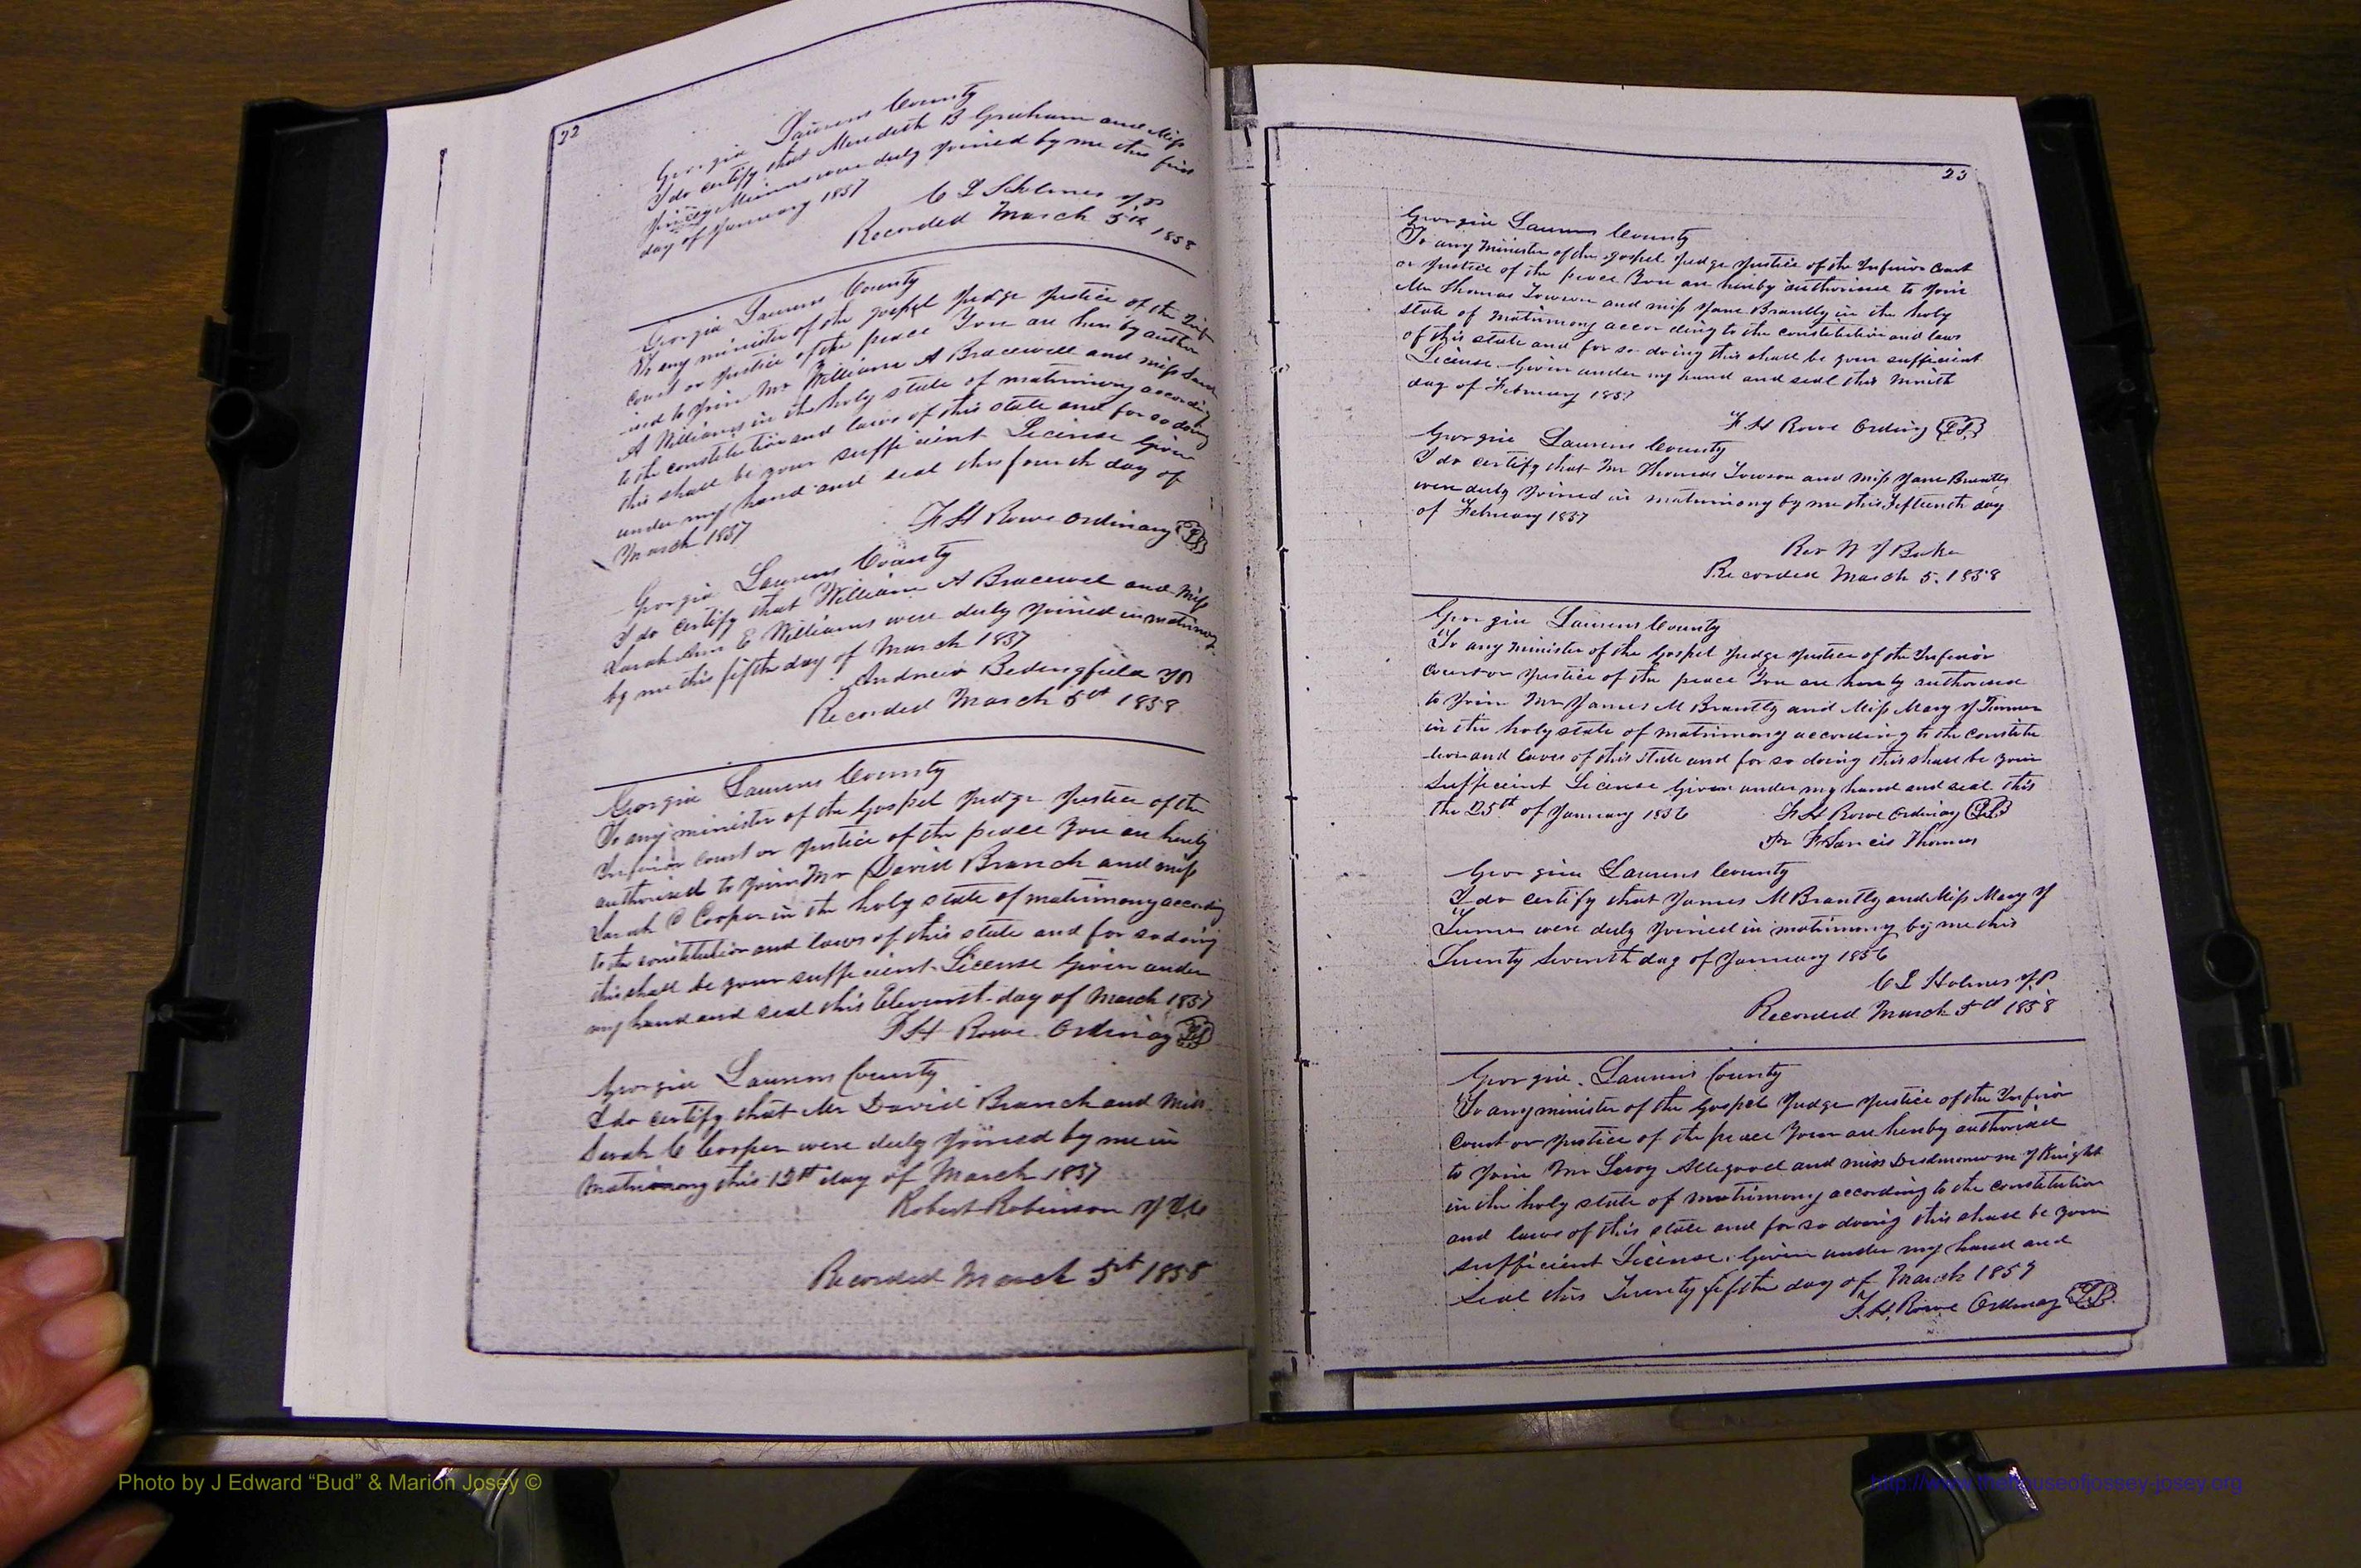 22
Georgia Laurens County
I do certify that Meredith B Graham and Miss
Mimms were duly Joined by me this first
day of January 1857
C L Holmes J P
Recorded March 5th 1858
Georgia Laurens County
To any minister of the gospel Judge Justice of the Inf
court or Justice of the peace You are here by author
ised to Join Mr William A Bracewell and miss Sarah
A Williams in the holy state of matrimony according
to the constitution and laws of this state and for so doing
this shall be your sufficient License Given
under my hand and seal this fourth day of
March 1857
F H Rowe Ordinary LS
Georgia Laurens County
I do certify that William A Bracewel and Miss
Sarah Ann E Williams were duly Joined in matrimony
by me this fifth day of March 1857
Andrew Bedingfield JP
Recorded March 5th 1858
Georgia Laurens County
To any minister of the Gospel Judge Justice of the
Inferior Court or Justice of the peace You are hereby
authorised to Join Mr David Branch and miss
Sarah C Cooper in the holy state of matrimony according
to the constitution and laws of this state and for so doing
this shall be your sufficient License Given under
my hand and seal this day of March 1857
F H Rowe Ordinary LS
Georgia Laurens County
I do certify that Mr David Branch and Miss
Sarah C Cooper were duly Joined by me in
Matrimony this 12th day of March 1857
Robert Robinson J I C
Recorded March 5th 1858
23
Georgia Laurens County
To any Minister of the gospel Judge Justice of the Inferior Court
or Justice of the peace You are hereby authorised to Join
Mr Thomas Towson and miss Jane Brantly in the holy
state of Matrimony according to the constitution and laws
of this state and for so doing this shall be your sufficient
License Given under my hand and seal this Nineth
day of February 1857
F H Rowe Ordiny LS
Georgia Laurens County
I do certify that Mr Thomas Towson and Miss Jane Brantly
were duly Joined in matrimony by me this Fifteenth day
of February 1857
Rev W J Baker
Recorded March 5. 1858
Georgia Laurens County
To any Minister of the Gospel Judge Justice of the Inferior
Court or Justice of the peace You are hereby authorised
to Join Mr James M Brantly and Miss Mary J Turner
in the holy state of matrimony according to the constitu
tion and laws of this state and for so doing this shall be your
sufficient License Given under my hand and seal this
the 25th of January 1856 F H Rowe Ordinay LS
Pr Francis Thomas
Georgia Laurens County
I do certify that James M Brantly and Miss Mary J
Turner were duly Joined in matrimony by me this
Twenty Seventh day of January 1856
C L Holmes J.P
Recorded March 5th 1858
Georgia. Laurens County
To any minister of the Gospel Judge Justice of the Inferior
Court or Justice of the peace Your are hereby authorised
to Join Mr Leroy Allegood and miss J Knight
in the holy state of matrimony according to the constitution
and laws of this state and for so doing this shall be your
sufficient License. Given under my hand and
Seal this Twenty fifth day of March 1857
F. H. Rowe Ordinay LS
Photo by J Edward “Bud” & Marion Josey ©
http://www.thehouseofjossey-josey.org